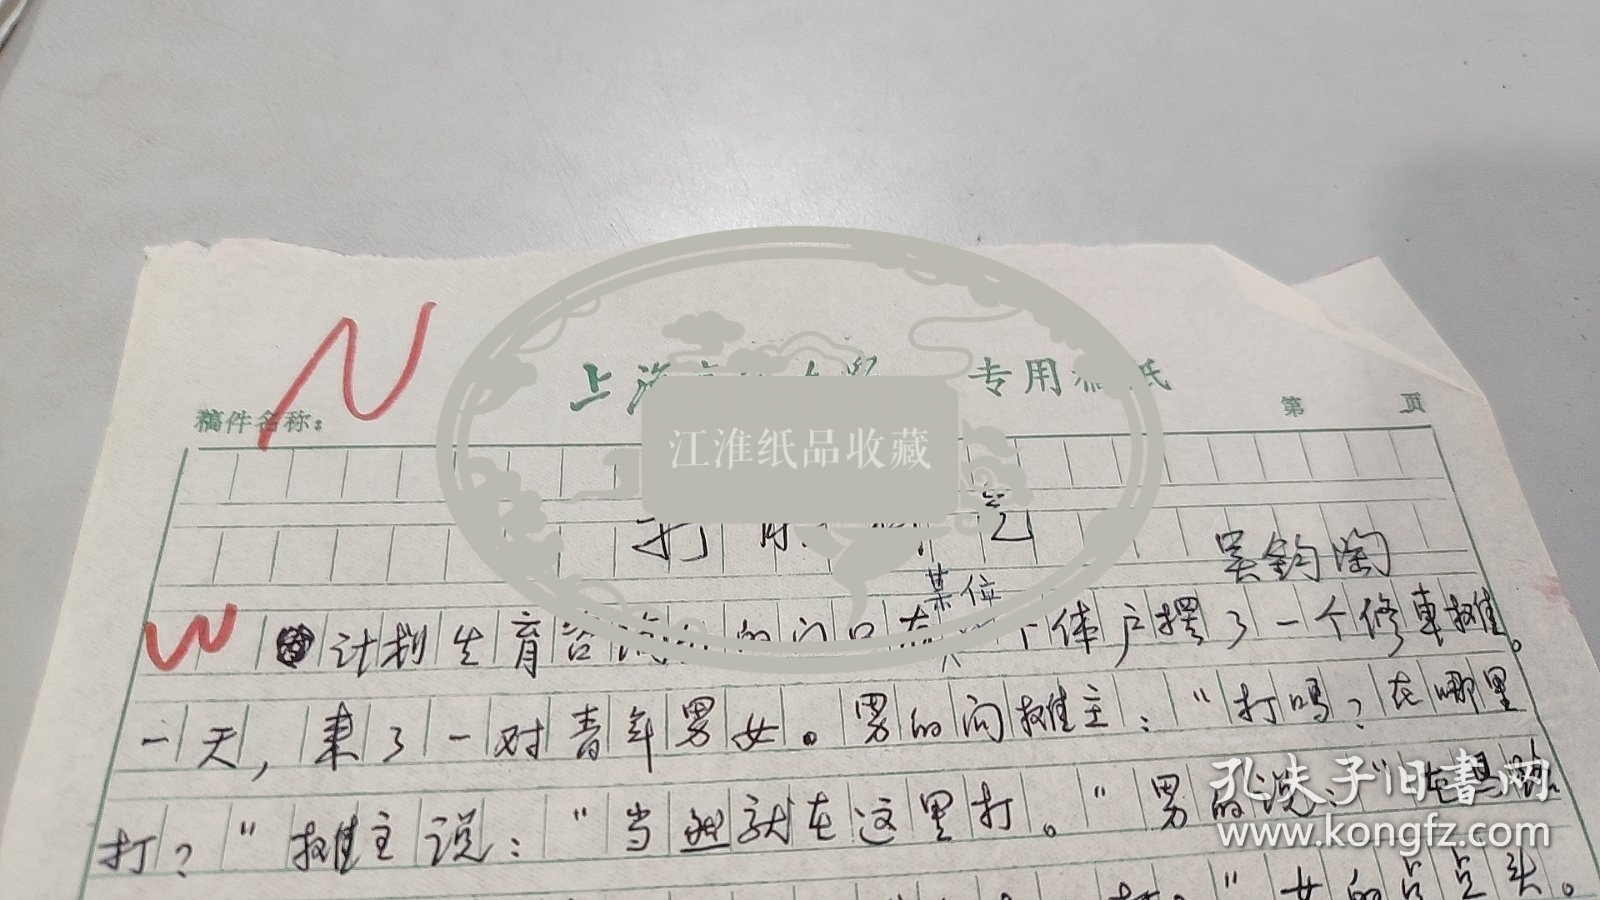 上海 专用稿纸
稿件名称： 第 页
江淮纸品收藏
打 气
吴钧陶
某位
计划生育咨询 的门口有 个体户摆了一个修车摊。
一天，来了一对青年男女。男的问摊主："打吗？在哪里
打？"摊主说："当然就在这里打。"男的说："在马路
"女的点点头。
孔夫子旧书网
www.kongfz.com